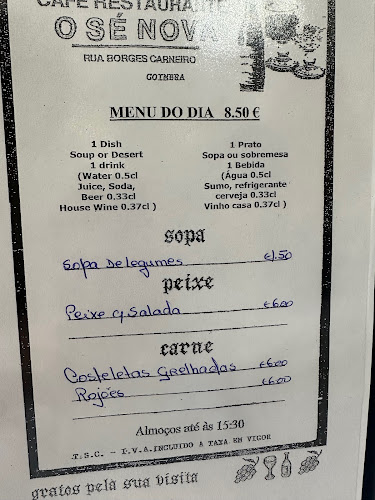 CAFÉ RESTAURANTE
O SÉ NOVA
RUA BORGES CARNEIRO
COIMBRA
MENU DO DIA 8.50 €
1 Dish
Soup or Desert
1 drink
(Water 0.5cl
Juice, Soda,
Beer 0.33cl
House Wine 0.37cl )
1 Prato
Sopa ou sobremesa
1 Bebida
(Água 0.5cl
Sumo, refrigerante
cerveja 0.33cl
Vinho casa 0.37cl )
sopa
Sopa De legumes €1.50
peixe
Peixe c/ Salada €6.00
carne
Costeletas Grelhadas €6.00
Rojões €6.00
Almoços até às 15:30
T.S.C. - I.V.A.INCLUIDO A TAXA EM VIGOR
gratos pela sua visita